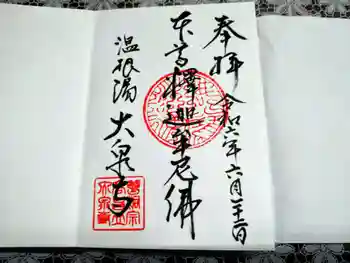 奉拝 令和六年六月二十二日
本尊釋迦牟尼佛
温根湯 大泉寺